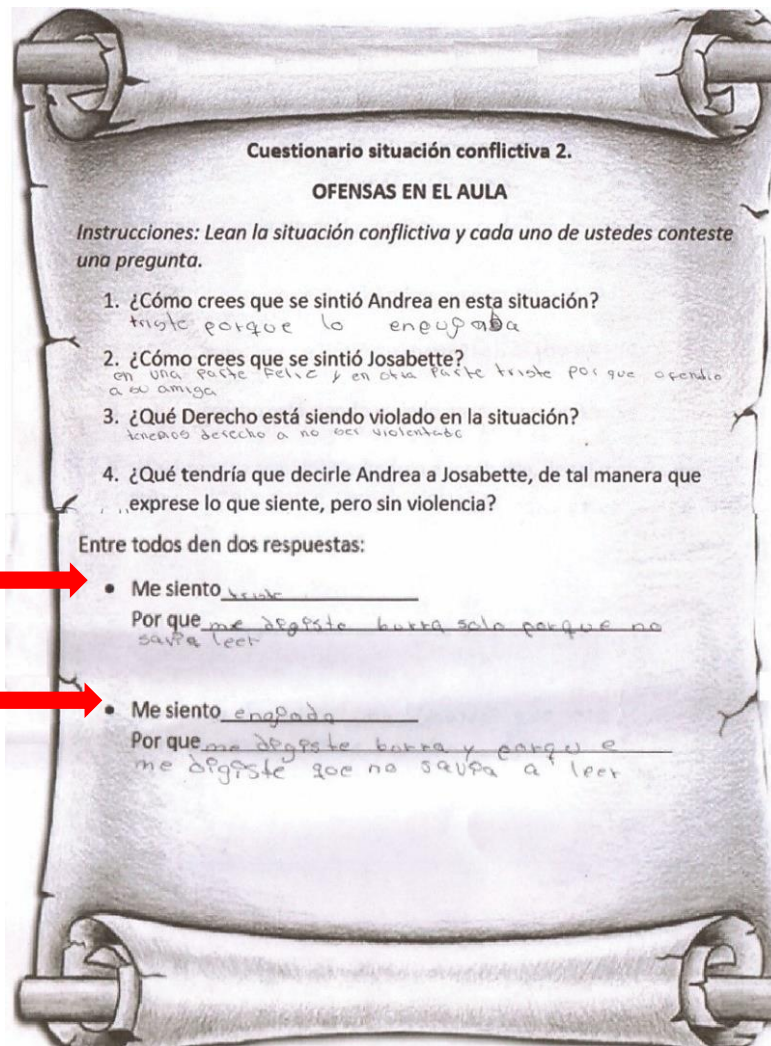 Cuestionario situación conflictiva 2.
OFENSAS EN EL AULA
Instrucciones: Lean la situación conflictiva y cada uno de ustedes conteste
una pregunta.
1. ¿Cómo crees que se sintió Andrea en esta situación?
triste porque lo
2. ¿Cómo crees que se sintió Josabette?
en una parte Feliz y en otra Parte triste por que ofendio
a su amiga
3. ¿Qué Derecho está siendo violado en la situación?
tenemos derecho a no ser violentado
4. ¿Qué tendría que decirle Andrea a Josabette, de tal manera que
exprese lo que siente, pero sin violencia?
Entre todos den dos respuestas:
• Me siento triste
Por que me digiste burra solo porque no
savia leer
• Me siento enogada
Por que me digiste burra y porque
me digiste que no savia a leer